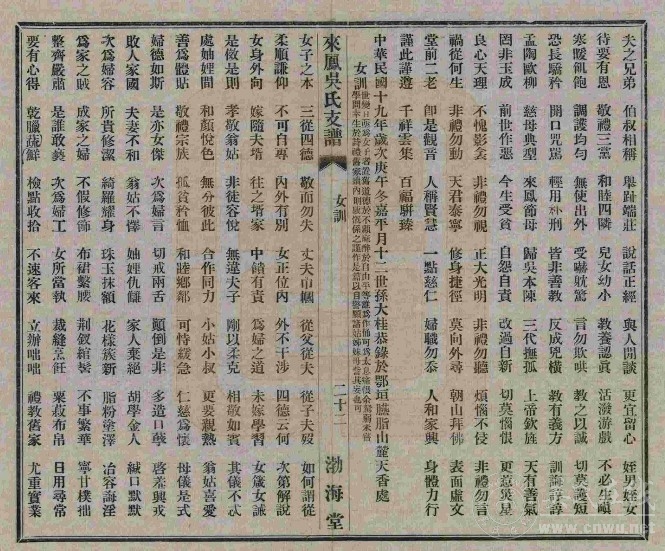 夫之兄弟 伯叔相稱 舉趾端莊 說話正經 與人閒談 更宜留心 姪男姪女
待要有恩 敬禮三黨 和睦四隣 兒女幼小 教養認眞 活潑游戲 不必生嗔
寒暖飢飽 調護均勻 無使出外 受嚇躭驚 言勿欺哄 教之以誠 切莫護短
恐長驕矜 開口咒罵 輕用朴刑 皆非善教 反成兇橫 教有義方 訓誨諄諄
孟陶歐柳 慈母典型 來鳳節母 歸吳本陳 三代撫孤 上帝欽旌 天有善氣
罔非玉成 前世作惡 今生受貧 自怨自責 改過自新 切莫惱恨 更惹災星
良心天理 不愧影衾 非禮勿視 正大光明 非禮勿聽 煩惱不侵 非禮勿言
禍從何生 非禮勿動 天君泰寧 修身捷徑 莫向外尋 朝山拜佛 表面虛文
堂前二老 卽是觀音 人稱賢慧 一點慈仁 婦職勿忝 人和家興 身體力行
謹此謹遵 千祥雲集 百福駢臻
中華民國十九年歲次庚午冬嘉平月十二世孫大桂恭錄於鄂垣臙脂山麓天香處
女訓
來鳳吳氏支譜 女訓 二十二 渤海堂
女子之本 三從四德 敬而勿失 丈夫巾幗 從父從夫 從子夫歿 如何謂從
柔順謙仰 不可自專 內外有別 女正位內 外不干涉 四德云何 次第解說
女身外向 嫁隨夫壻 往之壻家 中饋有責 爲婦之道 未嫁學習 女箴女誡
是儆是則 孝敬翁姑 非徒容悅 無違夫子 剛以柔克 相敬如賓 其儀不忒
處妯娌間 和顏悅色 無分彼此 合作同力 小姑小叔 更要親熱 翁姑喜愛
善爲體貼 敬禮宗族 孤貧矜恤 和睦鄉鄰 可恃緩急 仁慈爲懷 母儀是式
婦德如斯 是亦女傑 次爲婦言 切戒兩舌 顛倒是非 多造口孽 啓羞興戎
敗人家國 夫妻不和 翁姑不懌 妯娌仇讎 家人棄絕 胡學金人 緘口默默
次爲婦容 所貴修潔 綺羅耀身 珠玉抹額 花樣簇新 脂粉塗澤 冶容誨淫
爲家之賊 成家之婦 不假修飾 布裙繫腰 荊釵綰髻 不事繁華 甯甘樸拙
整齊嚴肅 是誰敢褻 次爲婦工 女所當執 裁縫烹飪 粟菽布帛 日用尋常
要有心得 乾臘蔬鮮 檢點收拾 不速客來 立辦咄咄 禮教舊家 尤重實業
www.cnwu.net